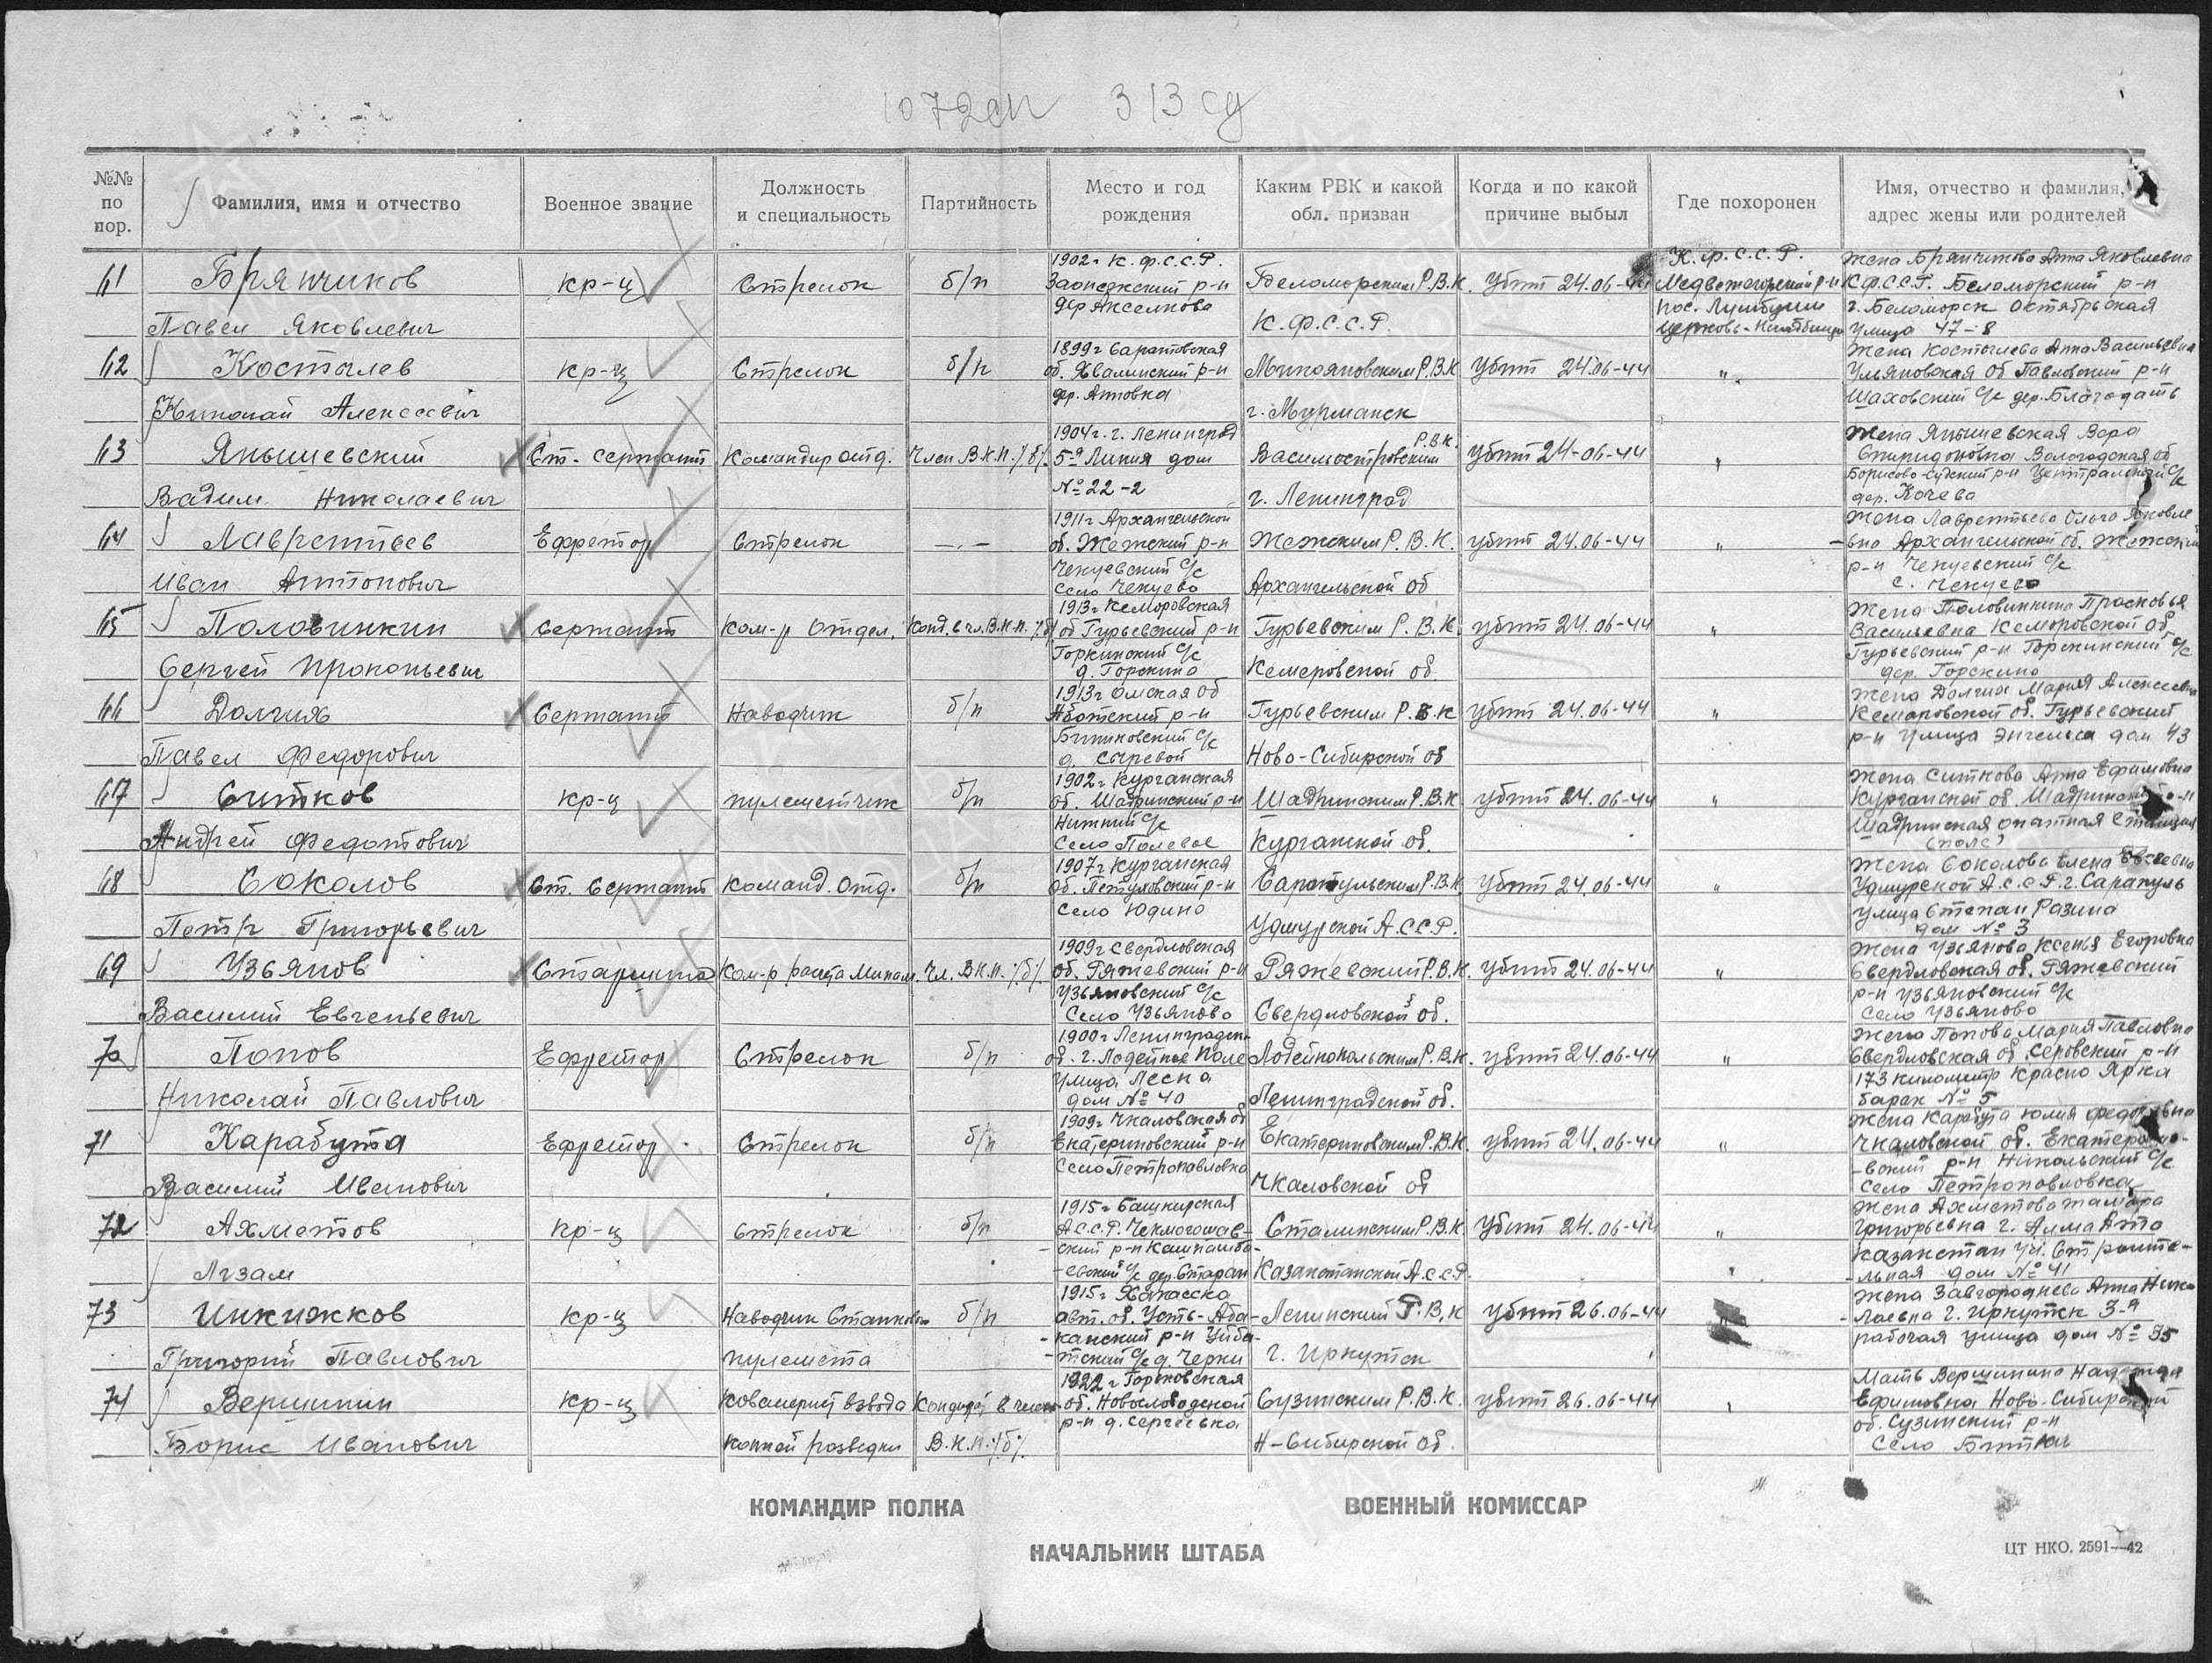 1072сп 313 сд
№№ по пор.
Фамилия, имя и отчество
Военное звание
Должность и специальность
Партийность
Место и год рождения
Каким РВК и какой обл. призван
Когда и по какой причине выбыл
Где похоронен
Имя, отчество и фамилия, адрес жены или родителей
61 Брянчиков кр-ц Стрелок б/п 1902 г К.ф.С.С.Р. Заонежский р-н Беломорским Р.В.К. Убит 24.06-44 К.ф.С.С.Р. Медвежегорский р-н Жена Брянчикова Анна Яковлевна К.ф.С.С.Р. Беломорский р-н
Павел Яковлевич К.Ф.С.С.Р. г. Беломорск Октябрьская улица 47-8
62 Костылев кр-ц Стрелок б/п 1899 г Саратовская об. Хвалинский р-н дер. Атовка Р.В.К Убит 24.06-44 " Жена Костылева Анна Васильевна Ульяновская об Павловский р-н
Николай Алексеевич г. Мурманск Шаховский с/с дер. Благодать
63 Янышевский Ст. сержант Командир отд. Член В.К.П./б/. 1904 г. г. Ленинград 5-я Линия дом №22-2 Василеостровским Р.В.К. убит 24-06-44 " Жена Янышевская Вера Спиридоновна Вологодская об
Вадим Николаевич г. Ленинград Борисово-Судский р-н Центральский с/с дер. Кочева
64 Лаврентьев Ефрейтор Стрелок —.— 1911 г Архангельской об. р-н Чекуевский с/с Село Чекуево Р.В.К. убит 24.06-44 " Жена Лаврентьева Ольга Яковлевна Архангельской об.
Иван Антонович Архангельской об р-н Чекуевский с/с с. Чекуево
65 Половинкин Сержант Ком-р отдел. Канд. в чл. В.К.П./б/ 1913 г Кемеровская об Гурьевский р-н Горкинский с/с д. Горскино Гурьевским Р.В.К. убит 24.06-44 " Жена Половинкина Прасковья Васильевна Кемеровской об
Сергей Прокопьевич Кемеровской об. Гурьевский р-н Горскинский с/с дер. Горскино
66 Долгих Сержант Наводчик б/п 1913 г Омская об Абатский р-н с/с д. Сыревой Гурьевским Р.В.К убит 24.06-44 " Жена Долгих Мария Алексеевна Кемеровской об. Гурьевский
Павел Федорович Ново-Сибирской об р-н улица Энгельса дом 43
67 Ситков кр-ц пулеметчик б/п 1902 г Курганская об. Шадринский р-н с/с Село Полевое Шадринским Р.В.К убит 24.06-44 " Жена Ситкова Анна Ефимовна Курганской об. Шадринский р-н
Андрей Федотович Курганской об. Шадринская опытная Станция (поле)
68 Соколов Ст. Сержант Команд. Отд. б/п 1907 г Курганская об. Петуховский р-н Село Юдино Сарапульским Р.В.К. убит 24.06-44 " Жена Соколова Елена Удмурской А.С.С.Р. г. Сарапуль
Петр Григорьевич Удмурской А.С.С.Р. улица Степан Разина дом №3
69 Узьянов Старшина Ком-р расчета Мином. Чл. В.К.П./б/. 1909 г Свердловская об. Ряжевский р-н Узьяновский с/с Село Узьяново Ряжевский Р.В.К. убит 24.06-44 " Жена Узьянова Ксенья Егоровна Свердловская об. Ряжевский
Василий Евгеньевич Свердловской об. р-н Узьяновский с/с Село Узьяново
70 Попов Ефрейтор Стрелок б/п 1900 г Ленинградск об. г. Лодейное Поле улица Леска дом №40 Лодейнопольским Р.В.К. убит 24.06-44 " Жена Попова Мария Павловна Свердловская об. Серовский р-н
Николай Павлович Ленинградской об. 173 километр Красно Ярка барак №5
71 Карабута Ефрейтор Стрелок б/п 1909 г Чкаловская об Екатериновский р-н Село Петропавловка Екатериновским Р.В.К. убит 24.06-44 " Жена Карабута Юлия Федоровна Чкаловской об. Екатерино-
Василий Иванович Чкаловской об -вский р-н Никольский с/с Село Петропавловка
72 Ахметов кр-ц Стрелок б/п 1915 г Башкирская А.С.С.Р. р-н Сталинским Р.В.К убит 24.06-44 " Жена Ахметова Тамара Григорьевна г. Алма Ата
Агзам Казахстанской А.С.С.Р. Казахстан ул. Строите-льная дом №41
73 Инкижков кр-ц Наводчик Станков б/п 1915 г Хакасска авт. об. Усть-Аба-канский р-н Уйба-тский с/с д. Чарки Ленинский Р.В.К убит 26.06-44 " Жена Завгороднева Анна Нико-лаевна г. Иркутск 3-я
Григорий Павлович пулемета г. Иркутск рабочая улица дом №35
74 Вершинин кр-ц Кавалерист взвода Кандидат в члены 1922 г Горьковская об. р-н д. Сергеевка Сузунским Р.В.К. убит 26.06-44 " Мать Вершинина Надежда Ефимовна Ново-Сибирской
Борис Иванович конной разведки В.К.П./б/. Н-Сибирской об. об. Сузунский р-н Село
КОМАНДИР ПОЛКА
ВОЕННЫЙ КОМИССАР
НАЧАЛЬНИК ШТАБА
ЦТ НКО. 2591—42